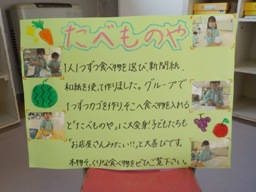 たべものや
1人1つずつ食べ物を選び新聞紙、
和紙を使って作りました。グループで
1つずつカゴを作り、そこへ食べ物を入れる
と「たべものや」に大変身!子どもたちも
"お店屋さんみたい!!"と大喜びです。
本物そっくりな食べ物をぜひご覧下さい。